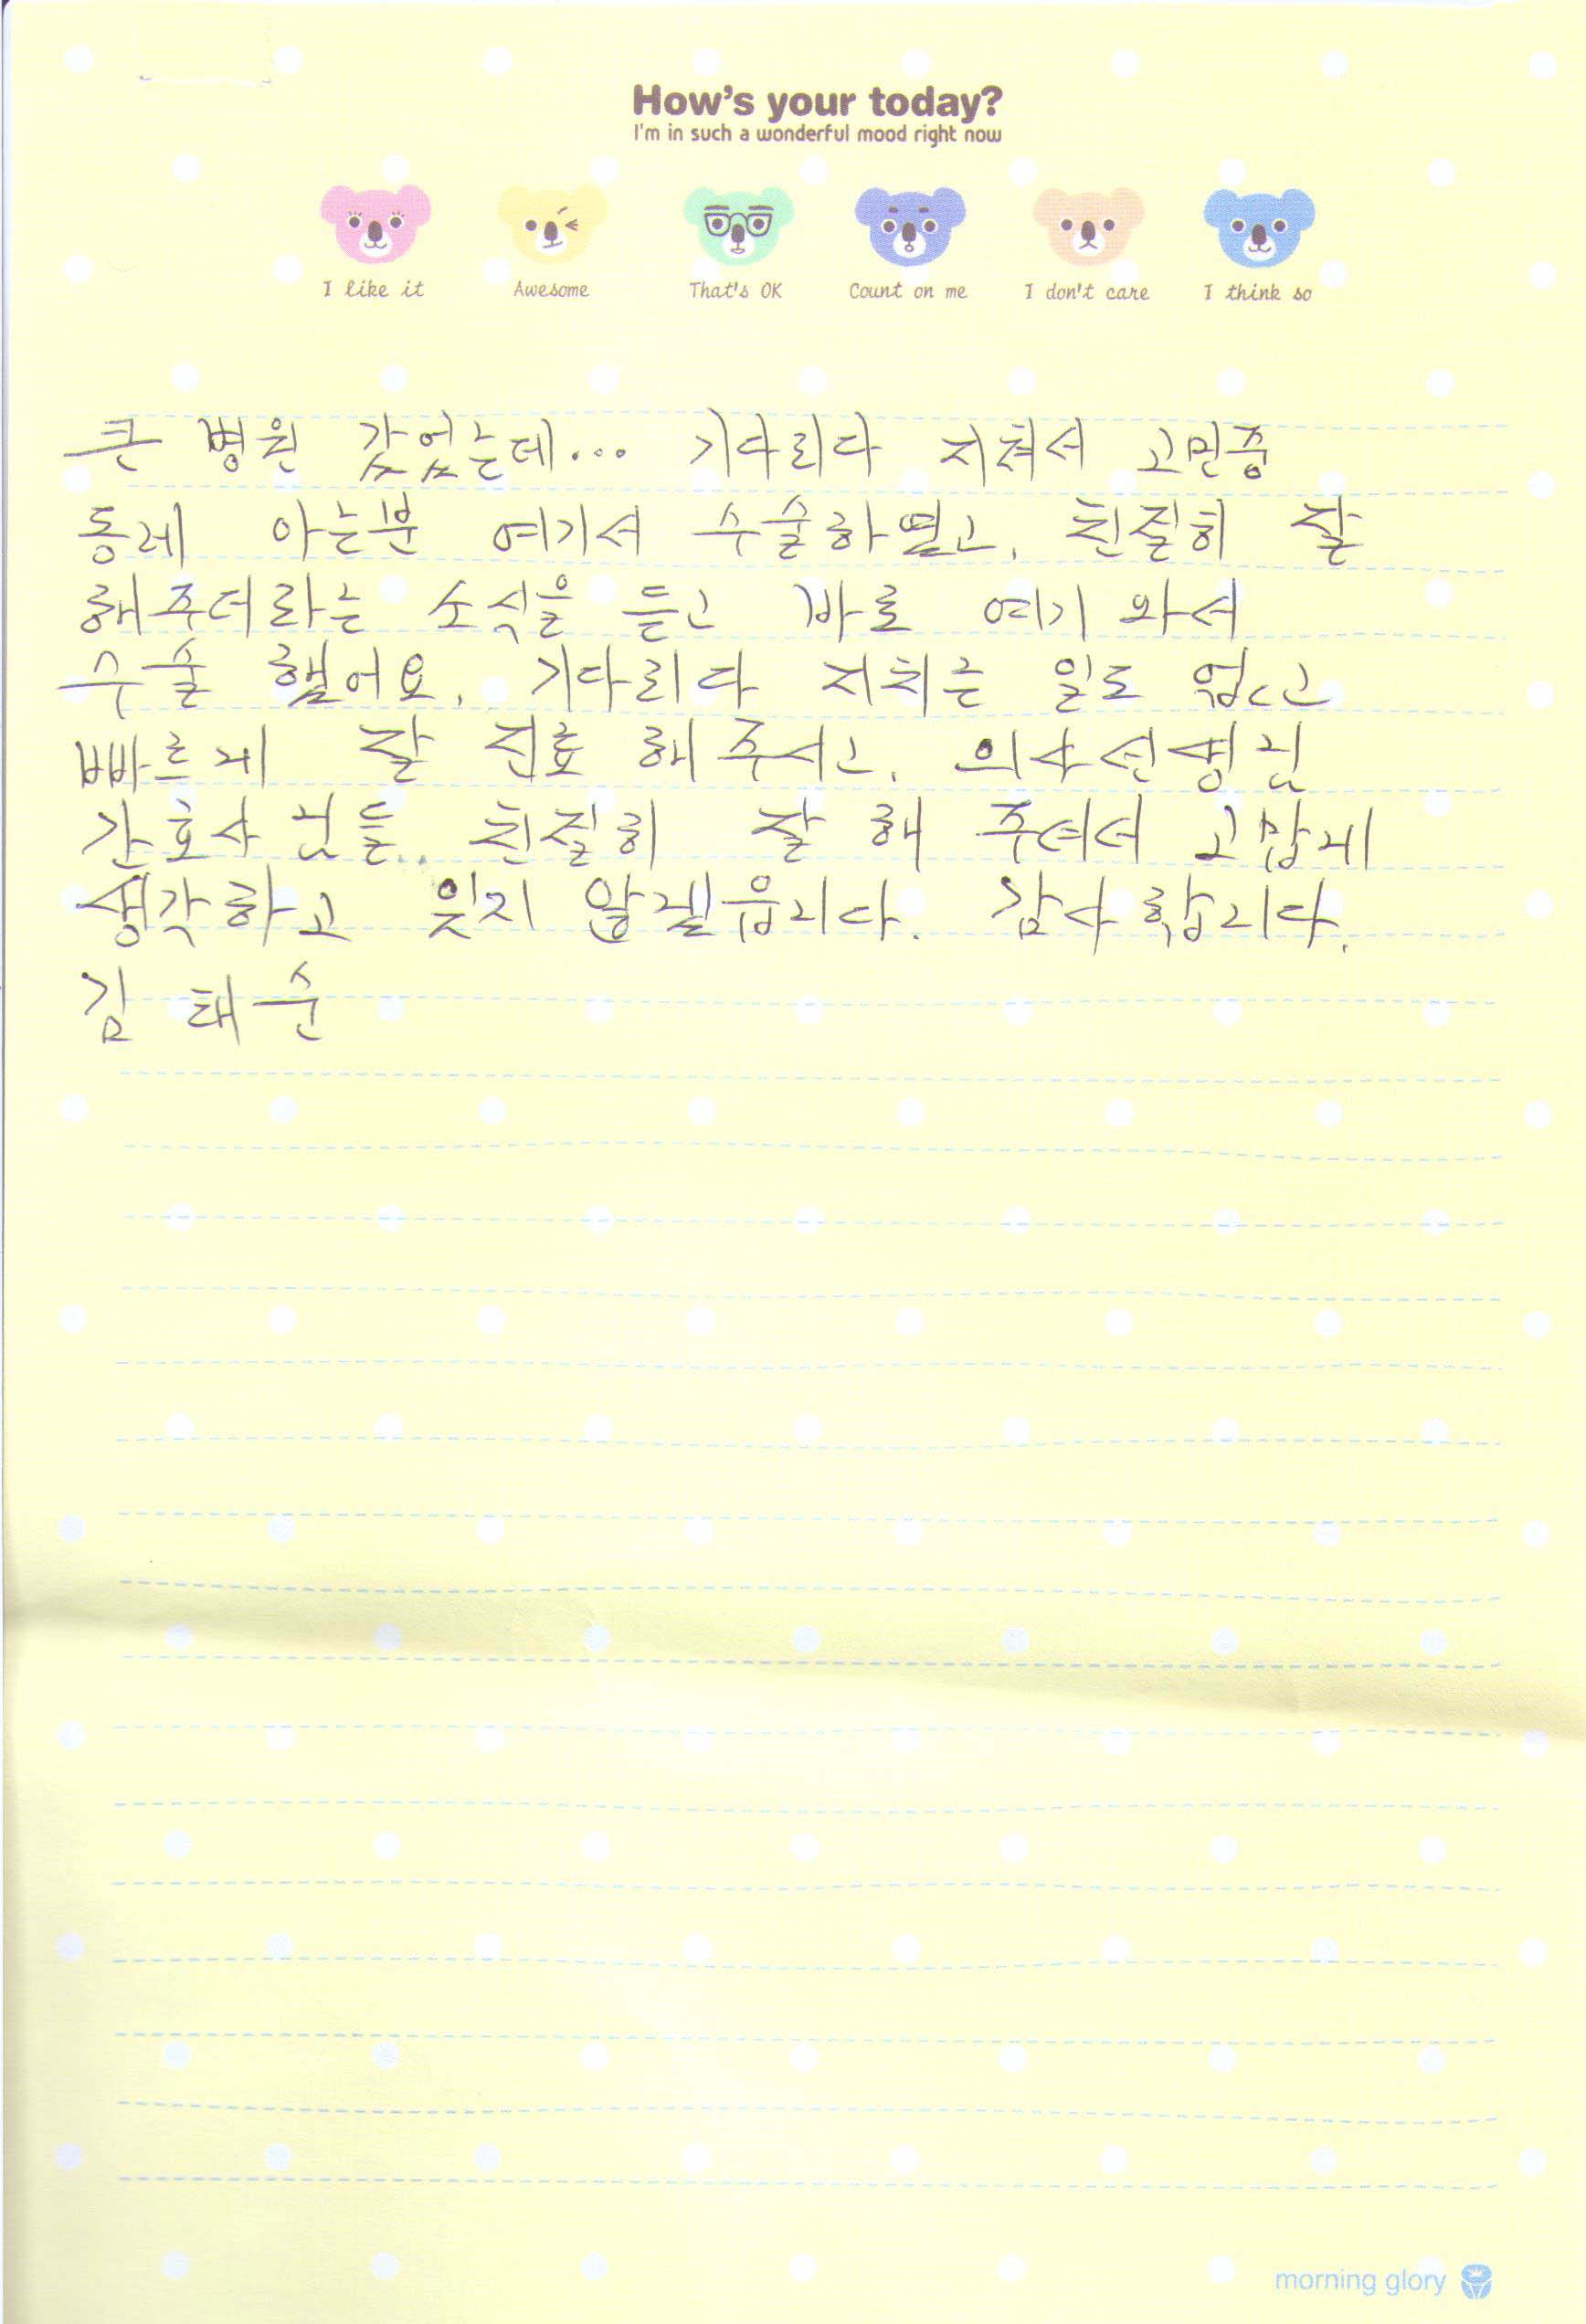 How's your today?
I'm in such a wonderful mood right now
I like it Awesome That's OK Count on me I don't care I think so
큰 병원 갔었는데... 기다리다 지쳐서 고민중
동네 아는분 여기서 수술하셨고, 친절히 잘
해주더라는 소식을 듣고 바로 여기 와서
수술 했어요. 기다리다 지치는 일도 없고
빠르게 잘 진료 해 주시고, 의사선생님
간호사 님들.. 친절히 잘 해 주셔서 고맙게
생각하고 잊지 않겠읍니다. 감사합니다.
김태순
morning glory